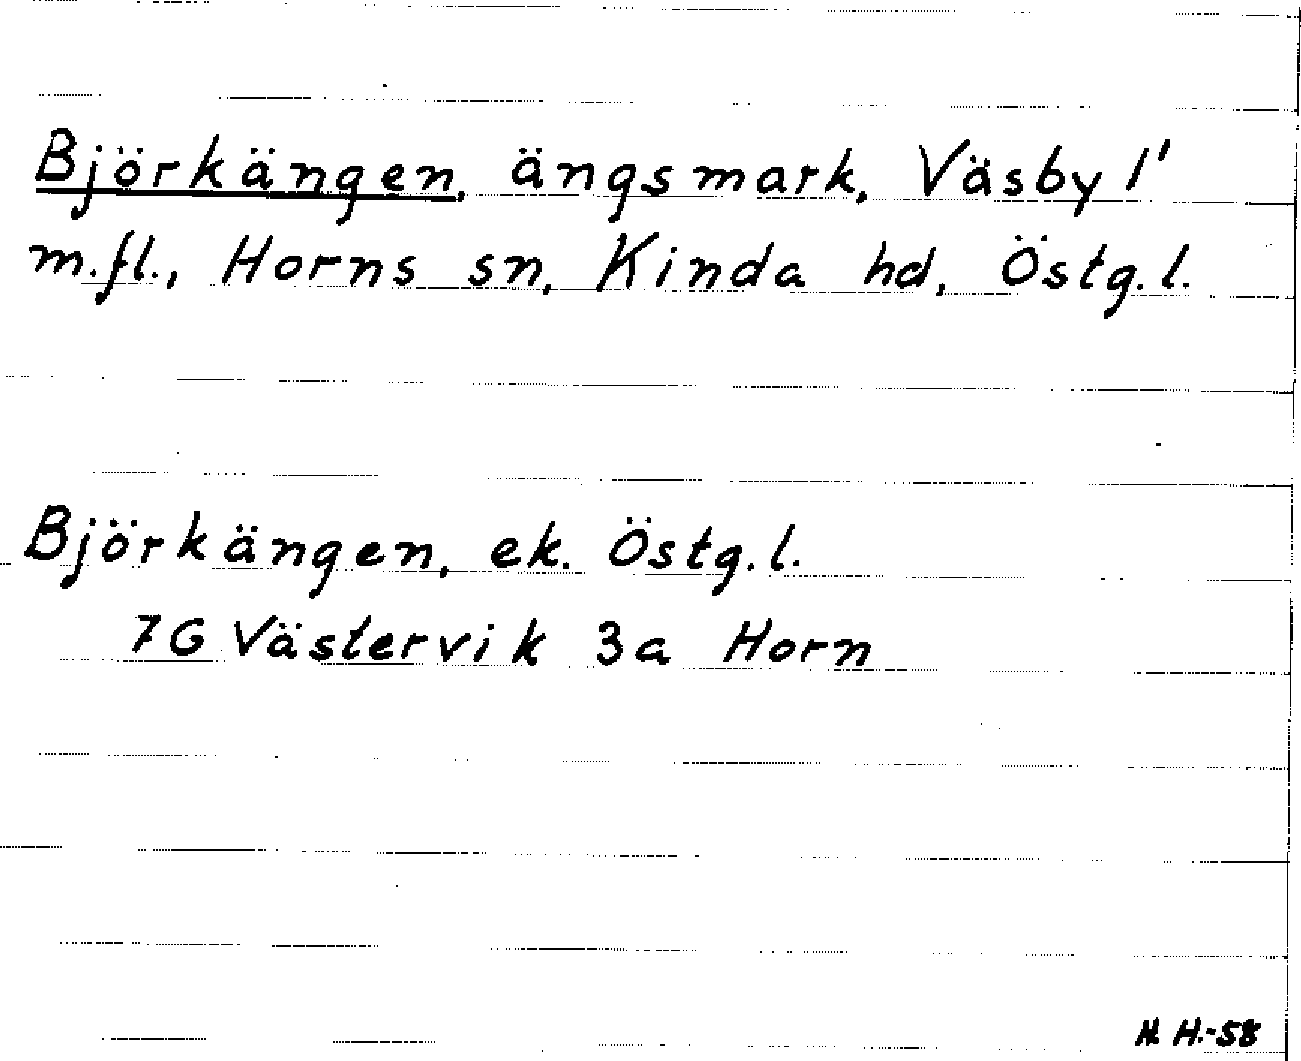 Björkängen, ängsmark, Väsby 1'
m.fl., Horns sn, Kinda hd, Östg.l.
Björkängen, ek. Östg.l.
7G Västervik 3a Horn
N.H.-58